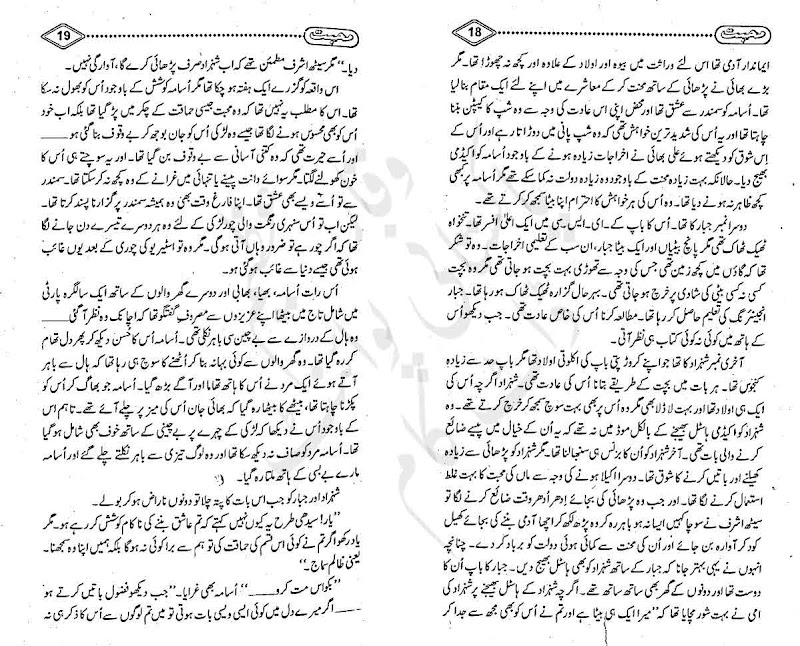 محبت 18
ایماندار آدمی تھا اس لئے وراثت میں بیوہ اور اولاد کے علاوہ اور کچھ نہ چھوڑا تھا۔ مگر
بڑے بھائی نے پڑھائی کے ساتھ محنت کر کے معاشرے میں اپنے لئے ایک مقام بنا لیا
تھا۔ اُسامہ کو سمندر سے عشق تھا اور محض اپنی اس عادت کی وجہ سے وہ شپ کا کیپٹن بننا
چاہتا تھا اور یہ اُس کی شدید ترین خواہش تھی کہ وہ شپ پانی میں دوڑاتا رہے اور اُس کے
اِس شوق کو دیکھتے ہوئے علی بھائی نے اخراجات زیادہ ہونے کے باوجود اُسامہ کو اکیڈمی
بھیج دیا۔ حالانکہ بہت زیادہ محنت کے باوجود وہ زیادہ دولت نہ کما سکے تھے مگر اُسامہ پر بھی
کچھ ظاہر نہ ہونے دیا تھا۔ وہ اُس کی ہر خواہش کا احترام اپنا بیٹا سمجھ کر کرتے تھے۔
دوسرا نمبر جبار کا تھا۔ اُس کا باپ کے۔ای۔ایس۔سی میں ایک اعلیٰ افسر تھا۔ تنخواہ
ٹھیک ٹھاک تھی مگر پانچ بیٹیاں اور ایک بیٹا جبار، ان سب کے تعلیمی اخراجات۔ وہ تو شکر
تھا کہ گاؤں میں کچھ زمین تھی جس کی وجہ سے تھوڑی بہت بچت ہو جاتی تھی مگر وہ بچت
کسی نہ کسی بیٹی کی شادی پر خرچ ہو جاتی تھی۔ بہرحال گزارہ ٹھیک ٹھاک ہو رہا تھا۔ جبار
انجینئرنگ کی تعلیم حاصل کر رہا تھا۔ مطالعہ کرنا اُس کی خاص عادت تھی۔ جب دیکھو اُس
کے ہاتھ میں کوئی نہ کوئی کتاب ہی نظر آتی۔
آخری نمبر شہزاد کا تھا جو اپنے کروڑ پتی باپ کی اکلوتی اولاد تھا مگر باپ حد سے زیادہ
کنجوس تھا۔ ہر بات میں بچت کے طریقے بتانا اُس کی عادت تھی۔ شہزاد اگرچہ اُس کی
ایک ہی اولاد تھا اور بہت لاڈلا بھی مگر وہ اُس پر بھی بہت سوچ سمجھ کر خرچ کرتے تھے۔ وہ
شہزاد کو اکیڈمی ہاسٹل بھیجنے کے بالکل موڈ میں نہ تھے کہ یہ اُن کے خیال میں پیسے ضائع
کرنے والی بات تھی۔ آخر شہزاد کو اُن کا بزنس ہی سنبھالنا تھا۔ مگر شہزاد کو پڑھائی سے زیادہ
کھیلنے اور باتیں کرنے کا شوق تھا۔ دوسرا اکیلا ہونے کی وجہ سے وہ ماں کی محبت کا بہت غلط
استعمال کرنے لگا تھا۔ اور جب وہ پڑھائی کی بجائے اِدھر اُدھر وقت ضائع کرنے لگا تو
سیٹھ اشرف نے سوچا کہیں ایسا نہ ہو باہر رہ کر وہ پڑھ لکھ کر اچھا آدمی بننے کی بجائے کھیل
کود کر آوارہ بن جائے اور اُن کی محنت سے کمائی ہوئی دولت کو برباد کر دے۔ چنانچہ
انہوں نے یہی بہتر جانا کہ جبار کے ساتھ شہزاد کو بھی ہاسٹل بھیج دیں۔ جبار کا باپ اُن کا
دوست تھا اور دونوں کے گھر بھی ساتھ ساتھ تھے۔ اگرچہ شہزاد کے ہاسٹل بھیجنے پر شہزاد کی
امی نے بہت شور مچایا تھا کہ ”میرا ایک ہی بیٹا ہے اور تم نے اُس کو بھی مجھ سے جدا کر
محبت 19
دیا۔“ مگر سیٹھ اشرف مطمئن تھے کہ اب شہزاد صرف پڑھائی کرے گا، آوارگی نہیں۔
اس واقعہ کو گزرے ایک ہفتہ ہو چکا تھا مگر اُسامہ کوشش کے باوجود اُس کو بھول نہ سکا
تھا۔ اس کا مطلب یہ نہیں تھا کہ وہ محبت جیسی حماقت کے چکر میں پڑ گیا تھا بلکہ اب خود
اُس کو بھی محسوس ہونے لگا تھا جیسے وہ لڑکی اُس کو جان بوجھ کر بے وقوف بنا گئی ہو____
اور اُسے حیرت تھی کہ وہ کتنی آسانی سے بے وقوف بن گیا تھا۔ اور یہ سوچتے ہی اُس کا
خون کھولنے لگتا۔ مگر سوائے دانت پیسنے یا تنہائی میں غرانے کے وہ کچھ نہ کر سکتا تھا۔ سمندر
سے تو اُسے ویسے بھی عشق تھا۔ اپنا فارغ وقت بھی وہ ہمیشہ سمندر پر گزارنا پسند کرتا تھا۔
لیکن اب تو اُس سنہری رنگت والی چور لڑکی کے لئے وہ ہر دوسرے تیسرے دن جانے لگا
تھا کہ اگر چور ہے تو ضرور وہاں آتی ہو گی۔ مگر وہ تو اسٹیریو کی چوری کے بعد یوں غائب
ہوئی تھی جیسے دنیا سے غائب ہو گئی ہو۔
اُس رات اُسامہ، بھیا، بھابی اور دوسرے گھر والوں کے ساتھ ایک سالگرہ پارٹی
میں شامل تاج میں بیٹھا اپنے عزیزوں سے مصروف گفتگو تھا کہ اچانک وہ نظر آ گئی____
وہ ہال کے دروازے سے بے چین سی باہر نکلی تھی۔ اُسامہ اُس کا حسن دیکھ کر پھر دل تھام
کر رہ گیا۔ وہ گھر والوں سے کوئی بہانہ بنا کر اُٹھنے کا سوچ ہی رہا تھا کہ ہال سے باہر
آتے ہوئے ایک مرد نے اُس کا ہاتھ تھاما اور آگے بڑھ گیا۔ اُسامہ جو بھاگ کر اُس کو
پکڑنا چاہتا تھا، بیٹھے کا بیٹھا رہ گیا کہ بھائی جان اُس کی میز پر چلے آئے تھے۔ تاہم اس
کے باوجود اُس نے دیکھا کہ لڑکی کے چہرے پر بے چینی کے ساتھ خوف بھی شامل ہو گیا
تھا۔ اُسامہ مرد کو صاف نہ دیکھ سکا تھا اور وہ لوگ تیزی سے باہر نکلتے چلے گئے اور اُسامہ
مارے بے بسی کے ہاتھ ملتا رہ گیا۔
شہزاد اور جبار کو جب اس بات کا پتہ چلا تو دونوں ناراض ہو کر بولے۔
”یار! سیدھی طرح یہ کیوں نہیں کہتے کہ تم عاشق بننے کی ناکام کوشش کر رہے ہو۔ مگر
یاد رکھو اگر تم نے کوئی اس قسم کی حماقت کی تو ہم سے برا کوئی نہ ہو گا بلکہ ہمیں اپنا وہ سمجھنا۔
یعنی ظالم سماج۔“
”بکواس مت کرو____“ اُسامہ بھی غرایا۔ ”جب دیکھو فضول باتیں کرتے ہو
____ اگر میرے دل میں کوئی ایسی ویسی بات ہوتی تو میں تم لوگوں سے اُس کا ذکر ہی نہ